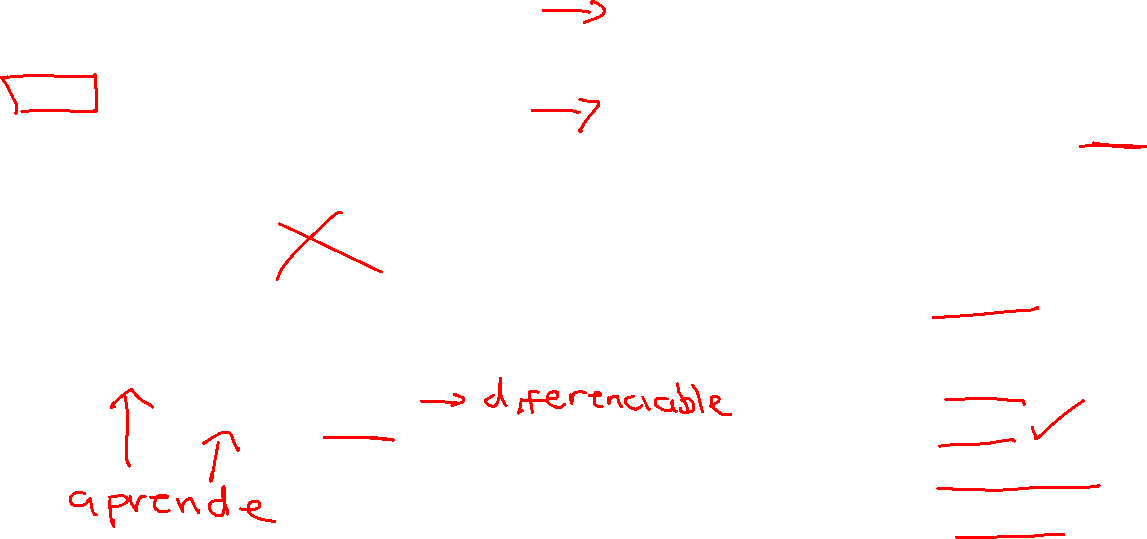 →
→
→ diferenciable
aprende